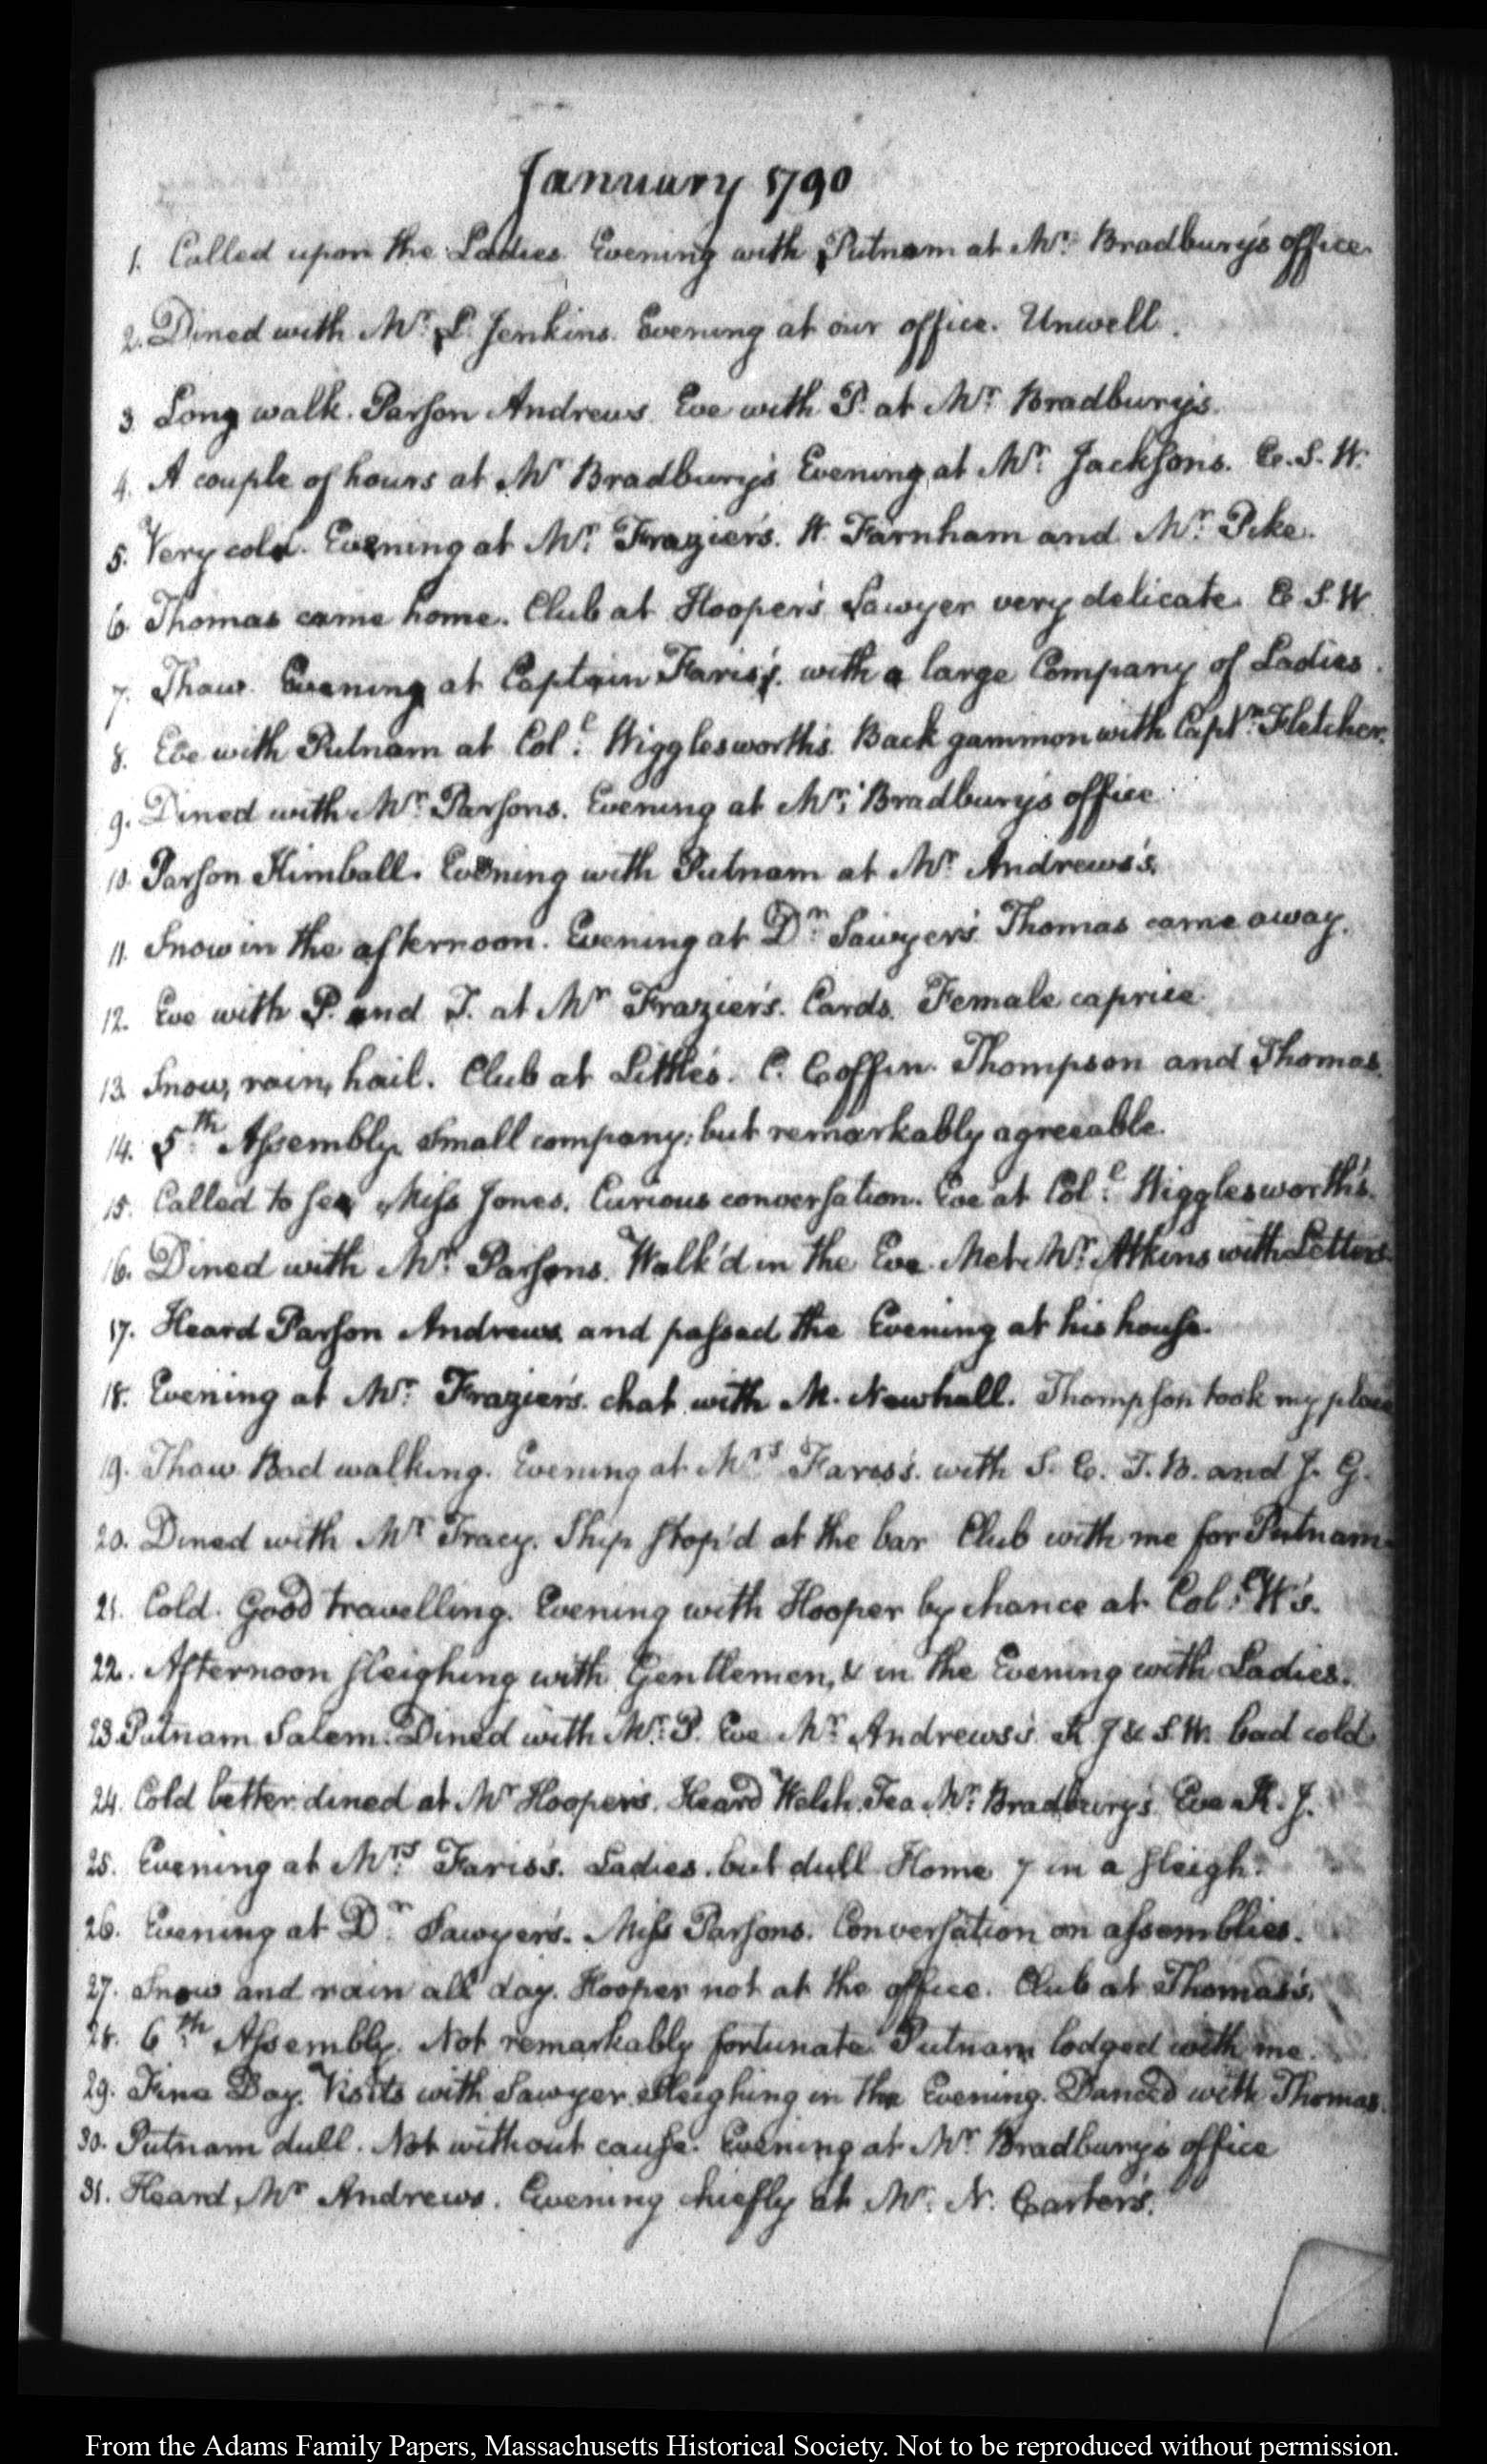 January 1790
1. Called upon the Ladies. Evening with Putnam at Mr. Bradbury's office.
2. Dined with Mr. Jenkins. Evening at our office. Unwell.
3 Long walk. Parson Andrews. Eve with P. at Mr. Bradbury's.
4. A couple of hours at Mr Bradbury's Evening at Mr. Jackson's. E. S. W.
5. Very cold. Evening at Mr. Frazier's. W. Farnham and Mr. Pike.
6. Thomas came home. Club at Hooper's Sawyer very delicate. E S. W
7. Thaw. Evening at Captain Faris's. with a large Company of Ladies.
8. Eve with Putnam at Coll. Wigglesworth's. Back gammon with Captn. Fletcher.
9. Dined with Mr. Parsons. Evening at Mr. Bradbury's office
10. Parson Kimball. Evening with Putnam at Mr. Andrews's.
11. Snow in the afternoon. Evening at Dr. Sawyer's. Thomas came away.
12. Eve with P. and T. at Mr Frazier's. Cards. Female caprice.
13. Snow, rain, hail. Club at Little's. C. Coffin. Thompson and Thomas.
14. 5th. Assembly. Small company: but remarkably agreeable.
15. Called to see Miss Jones. Curious conversation. Eve at Coll. Wigglesworth's.
16. Dined with Mr. Parsons. Walk'd in the Eve. Met Mr. Atkins with Letters.
17. Heard Parson Andrews and passed the Evening at his house.
18. Evening at Mr. Frazier's. chat with M. Newhall. Thompson took my place
19. Thaw. Bad walking. Evening at Mrs. Faris's. with S. C. T. B. and J. G.
20. Dined with Mr Tracy. Ship stop'd at the bar Club with me for Putnam.
21. Cold. Good travelling. Evening with Hooper by chance at Coll. W's.
22. Afternoon sleighing with Gentlemen, & in the Evening with Ladies.
23. Putnam Salem. Dined with Mr. P. Eve Mr. Andrews's. R J & S. W. bad cold
24. Cold better. dined at Mr Hooper's. Heard Welch. Tea Mr. Bradbury's. Eve R. J.
25. Evening at Mrs. Faris's. Ladies. but dull Home 7 in a sleigh.
26. Evening at Dr. Sawyer's. Miss Parsons. Conversation on assemblies.
27. Snow and rain all day. Hooper not at the office. Club at Thomas's.
28. 6th Assembly. Not remarkably fortunate. Putnam lodged with me.
29. Fine Day. Visits with Sawyer. Sleighing in the Evening. Danced with Thomas.
30. Putnam dull. Not without cause. Evening at Mr. Bradbury's office
31. Heard Mr Andrews. Evening chiefly at Mr. N. Carter's.
From the Adams Family Papers, Massachusetts Historical Society. Not to be reproduced without permission.